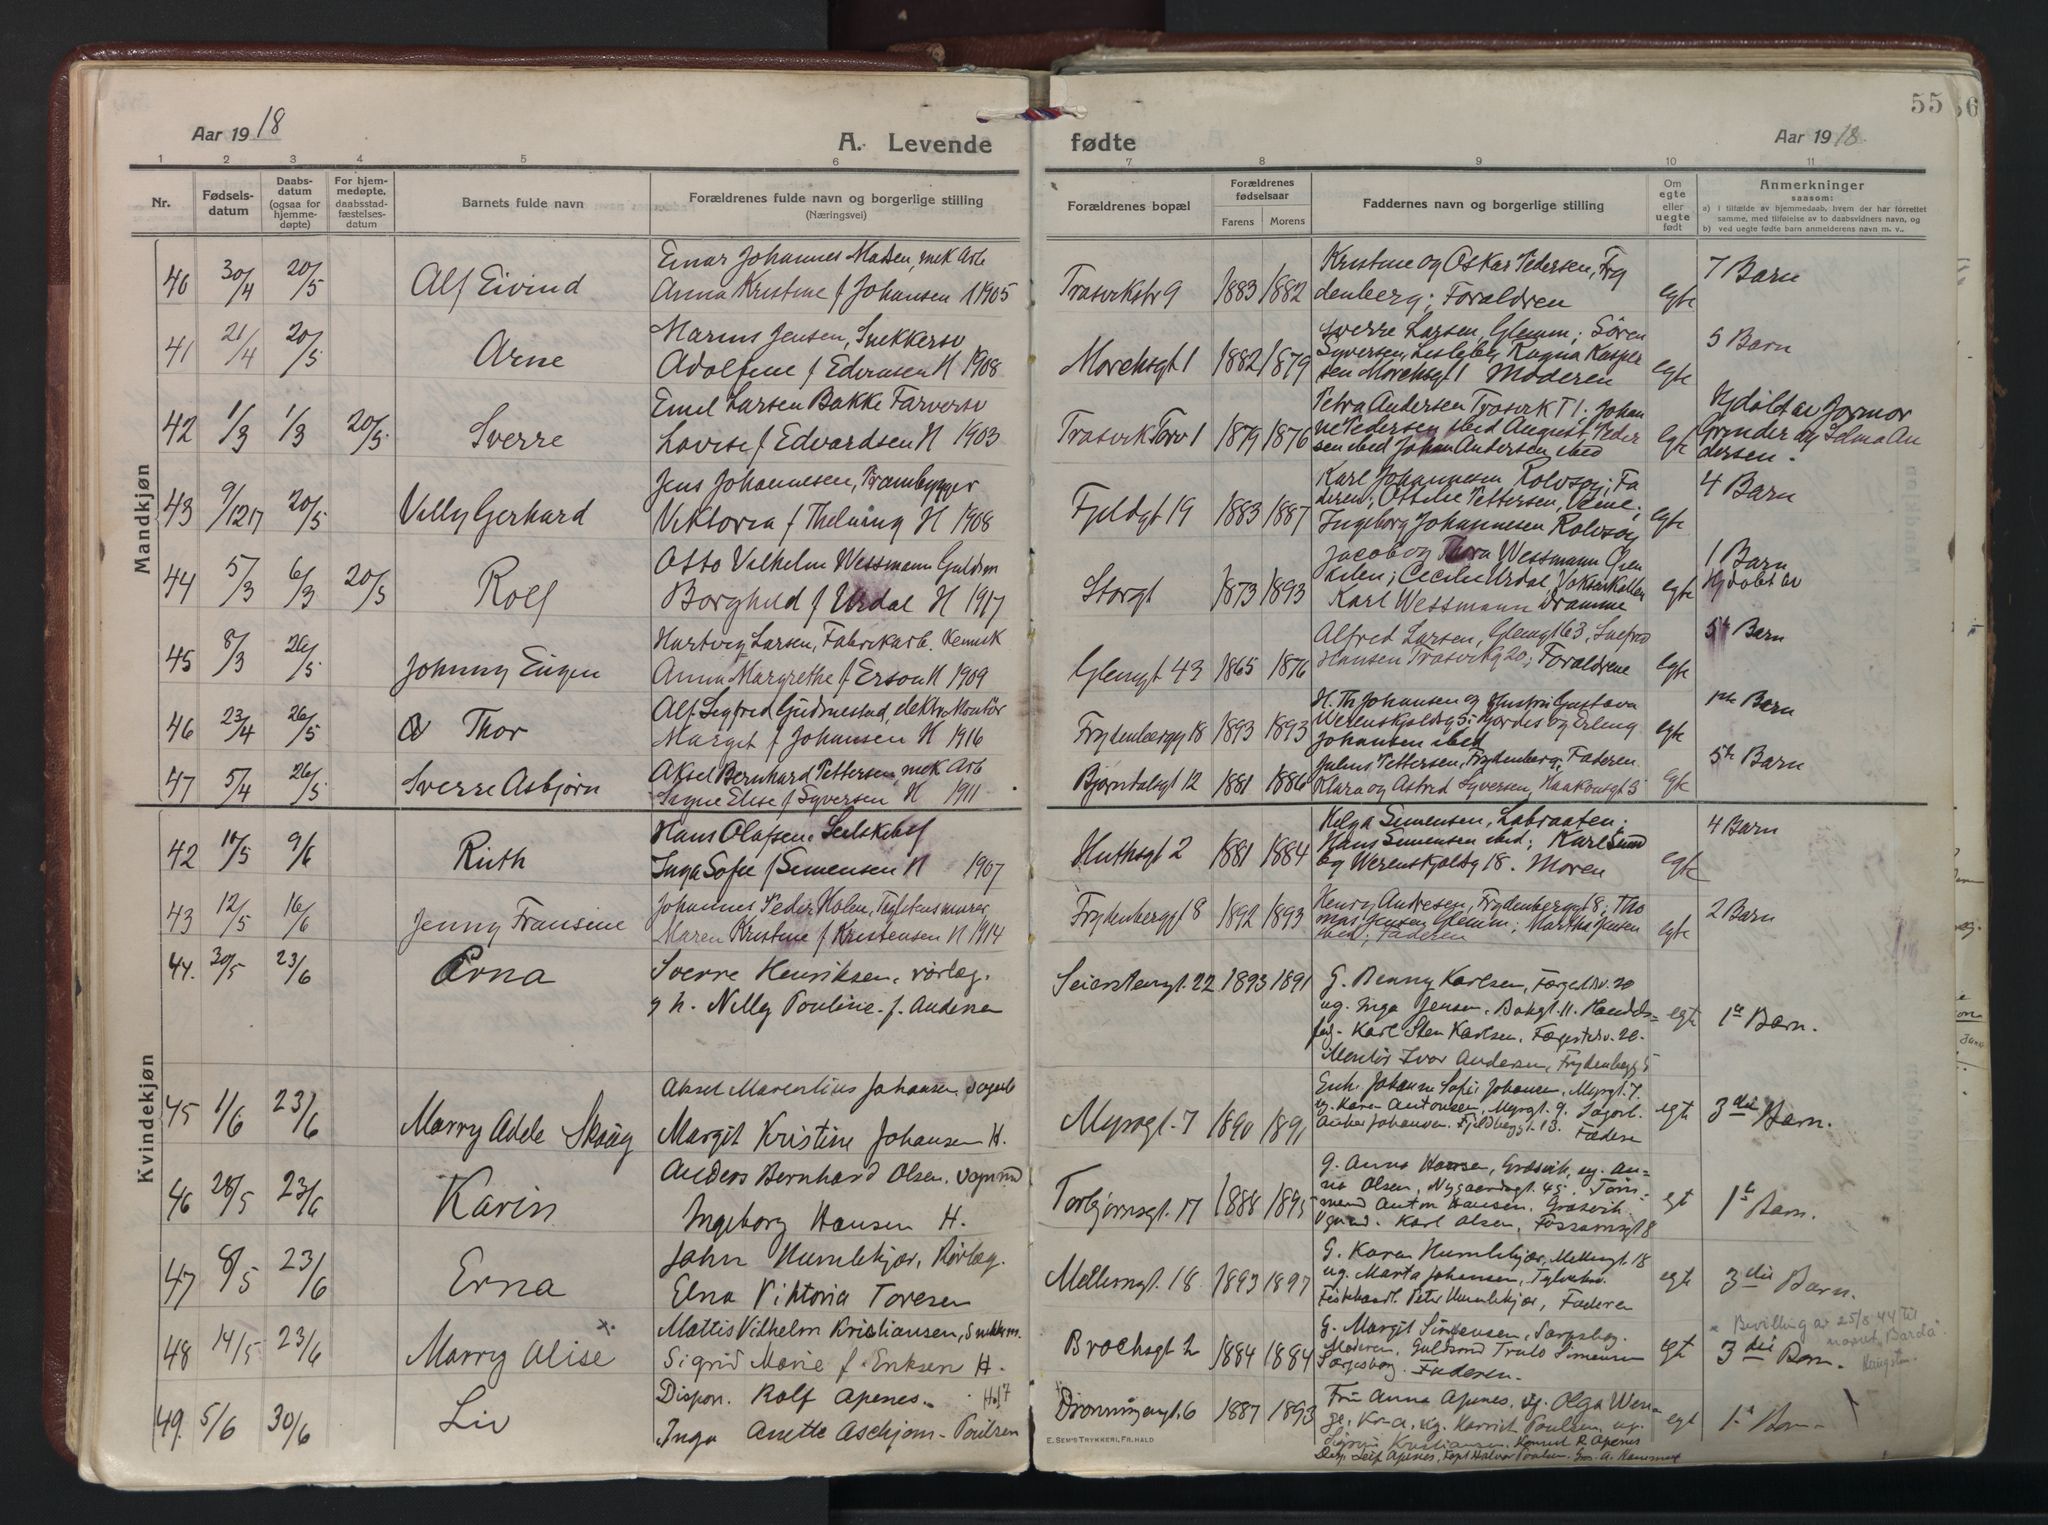 Aar 1918
A. Levende
fødte
Aar 1918
55
56
1 2 3 4 5 6 7 8 9 10 11
Nr.
Fødsels-
datum
Daabs-
datum
(ogsaa for
hjemme-
døpte)
For hjem-
medøpte,
daabsstad-
fæstelses-
datum
Barnets fulde navn
Forældrenes fulde navn og borgerlige stilling
(Næringsvei)
Forældrenes bopæl
Forældrenes
fødselsaar
Farens Morens
Faddernes navn og borgerlige stilling
Om
egte
eller
uegte
født
Anmerkninger
saasom:
a) i tilfælde av hjemmedaab, hvem der har forrettet
samme, med tilføielse av to daabsvidners navn, og
b) ved uegte fødte barn anmelderens navn m. v..
Mandkjøn
40 30/4 20/5 Alf Eivind
Einar Johannes Madsen, mek Arb
Anna Kristine f Johansen 1905
Trosvikstr 9 1883 1882
Kristine og Oskar Pedersen, Fry
denberg; Foraldren
egte 7 Barn
41 21/4 20/5 Arne
Marius Jensen, Snekkersv
Adolfine f Edvinsen H 1908
Morchsgt 1 1882 1879
Sverre Larsen, Glemm; Sören
Syversen, Lisleby, Ragna Kasper
sen Morchsgt 1 Moderen
egte 5 Barn
42 1/3 1/3 20/5 Sverre
Emil Larsen Bakke Farversv
Lovise f Edvardsen H 1903
Trosvik Torv 1 1879 1876
Petra Andersen Trosvik T 1. Johan
ne Pedersen ibid August Peder
sen ibid Johan Andersen ibid
egte Hjdöbt av Jormor
Grinder og Selma An
dersen.
43 9/12 17 20/5 Villy Gerhard
Jens Johannesen, Brambygger
Viktoria f Thelning H 1908
Fjeldgt 19 1883 1887
Karl Johannesen Rolvsøy; Fa
deren; Ottilie Pettersen, Veme;
Ingeborg Johannesen Rolvsøy
egte 4 Barn
44 5/3 6/3 20/5 Rolf
Otto Vilhelm Wessmann Guldsm
Borghild f Urdal H 1917
Storgt 1873 1893
Jacob og Thora Wessmann
Cecilie Urdal,
Karl Wessmann Dramme
egte 1 Barn
Hjdøbt av
45 8/3 26/5 Johnny Eugen
Hartvig Larsen, Fabrikarb. Kemisk
Anna Margrethe f Erson H 1909
Glemgt 43 1865 1876
Alfred Larsen, Glemgt 63,
Hansen Trosvikg 20; Foraldrene
egte 5te Barn
46 23/4 26/5 Thor
Alf Sigfred Gudmestad, elektr. Montör
Margit f Johansen H 1916
Frydenbergg 18 1893 1893
H. Th Johansen og Hustru Gustava
Werenskjoldsg 5; Hjørdis og Erling
Johansen ibid
egte 1ste Barn
47 5/4 26/5 Sverre Asbjørn
Aksel Bernhard Pettersen, mek Arb
Signe Elise f Syversen H 1911
Bjørndalsgt 12 1881 1886
Julius Pettersen, Frydenberg; Faderen.
Klara og Astrid Syversen, Haakonsgt 5
egte 5te Barn
Kvindekjøn
42 10/5 9/6 Ruth
Hans Olafsen,
Inga Sofie f Simensen H 1907
Huthsgt 2 1881 1884
Helga Simensen, Labraaten;
Hans Simensen ibid; Karl Sund
by Werenskjoldsg 18. Moren
egte 4 Barn
43 12/5 16/6 Jenny Fransine
Johannes Peder Holen, Teglstensmurer
Maren Kristine f Kristensen H 1914
Frydenberggt 8 1892 1893
Henry Andresen, Frydenberggt 8; Tho
mas Jensen Glemm; Martha Jensen
ibid; Faderen
egte 2 Barn
44. 30/5 23/6 Erna
Sverre Henriksen, rørlæg.
g h. Nelly Pouline f. Andersen
Seierstengt. 22 1893 1891
G. Benny Karlsen, Færgestdv. 20
ug. Inga Jensen, Bakgt. 11. Handels-
fuldm. Karl Sten Karlsen, Færgestdv. 20.
Montør Ivar Andersen, Frydenbergg 5
egte 1ste Barn.
45 1/6 23/6 Marry Adele Skaug
Aksel Marentius Johansen, sagarb
Margit Kristine Johansen H.
Myrsgt. 7 1890 1891
Enk. Johanne Sofie Johansen, Myrgt. 7.
ug. Karen Antonsen, Myrgt. 9. Sagarb.
Anker Johansen. Fjeldberggt. 13. Fadere
egte 3die Barn.
46 28/5 23/6 Karin
Anders Bernhard Olsen, vognmd
Ingeborg Hansen H.
Torbjørnsgt. 17 1888 1895
G. Anna Hansen, Græsvik, ug. An-
na Olsen, Nygaardsgt. 45. Tøm-
mermd Anton Hansen, Græsvik.
Vgnmd. Karl Olsen, Fossumsgt 8
egt 1ste Barn.
47 8/5 23/6 Erna
John Humlekjær, Rørlæg.
Elna Viktoria Toresen
Mellemgt. 18. 1893 1897
G. Karen Humlekjær, Mellemgt. 18
ug. Marta Johansen,
Peter Humlekjær, Faderen
egte 3die Barn.
48 14/5 23/6 Marry Alise x.
Mattis Vilhelm Kristiansen, Snekkerm.
Sigrid Marie f. Eriksen H.
Brochsgt 2 1884 1884
G. Margit Simensen, Sarpsborg.
Moderen, Guldsmd Truls Simensen
Sarpsborg. Faderen.
egte 3die Barn.
x Bevilling av 25/8 44 til
navnet "Barda".
49. 5/6 30/6 Liv
Dispon. Rolf Apenes
Inga Anette Aschjem-Poulsen
Dronningensgt. 6 1887 1893
Fru Anna Apenes, ug. Olga Wen-
ge. Kr-a. ug. Harriet Poulsen, ug.
Sigrun Kristiansen, Konsul R. Apenes
Disp. Leif Apenes, Kapt Halvor Poulsen
egt 1ste Barn
E. SEM'S TRYKKERI, FR.HALD